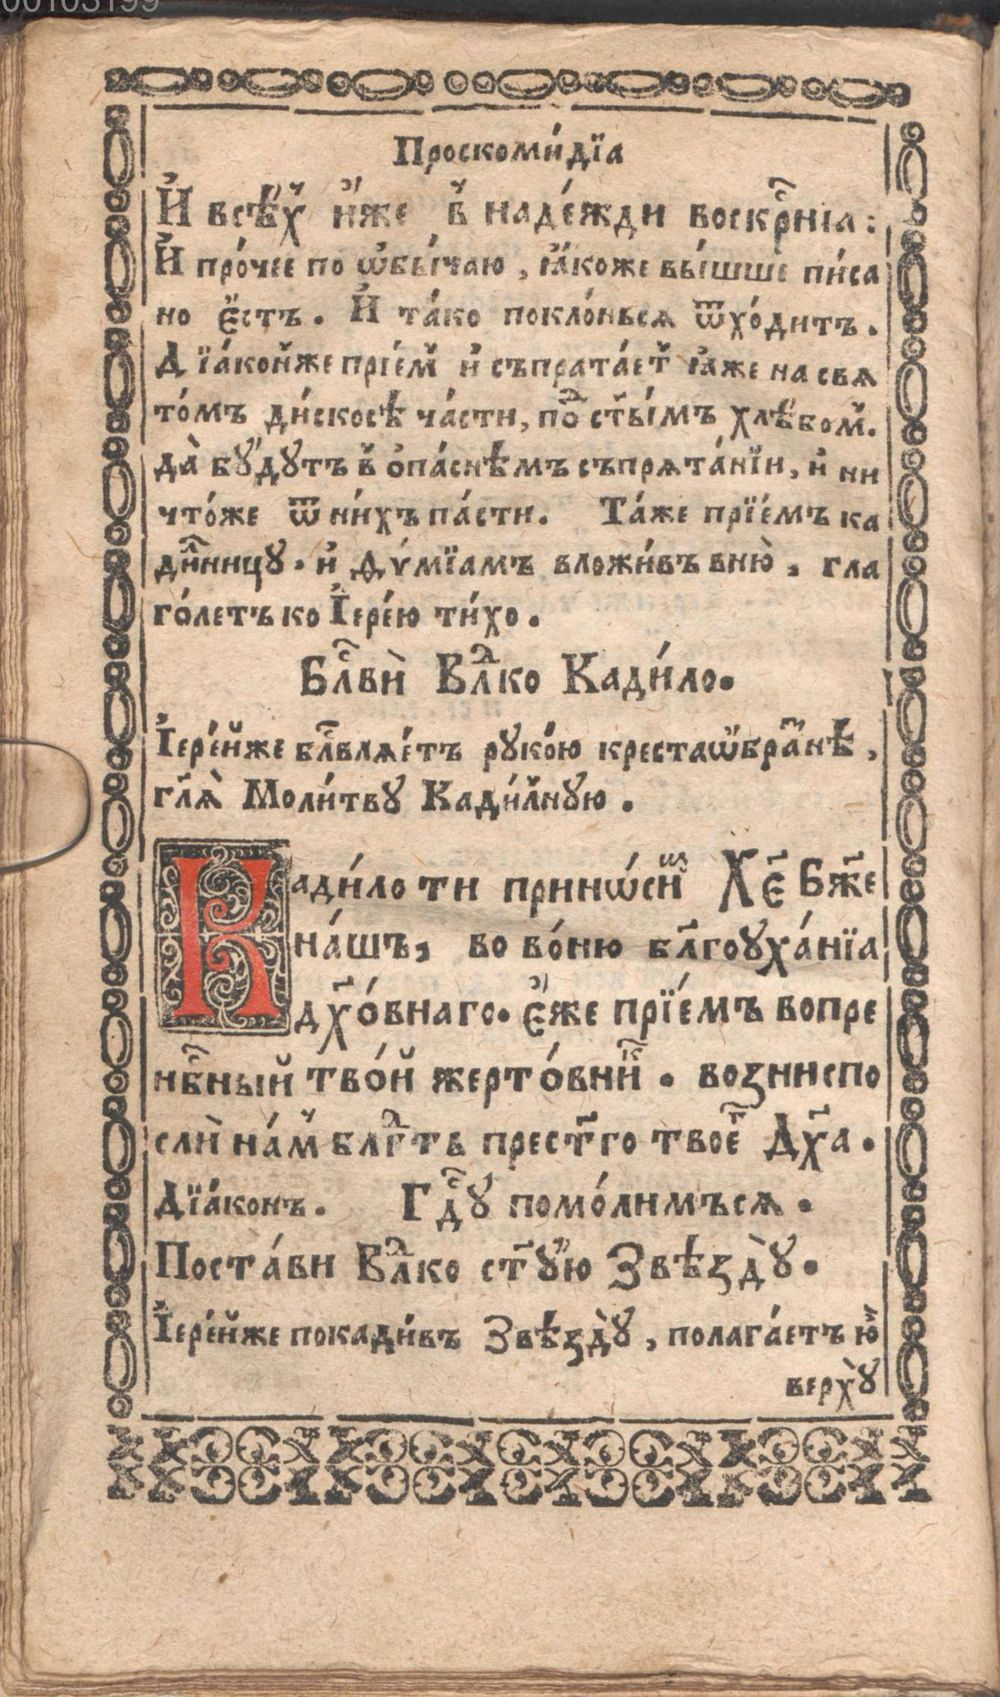 00103199
Проскоми́дїа
И҆ всѣ́х и҆́же в наде́жди воскр҇нїѧ:
И҆ про́чее по ѡ҆бы́чаю, ꙗ҆́коже вы́шше пи́са
но є҆́стъ. И҆ та́ко покло́ньсѧ ѿхо́дитъ.
Дїа́конже прїе́м и҆ съпрата́ет ꙗ҆́же на свѧ
то́мъ ди́скосѣ ча́сти, поⷣ ст҃ы́мъ хлѣ́бом.
да̀ бꙋ́дꙋтъ в ѻ҆па́снѣмъ съпрѧта́нїи, и҆ ни
что́же ѿ ни́хъ па́сти. Та́же прїе́мъ ка
ди́лницꙋ. и҆ ѳѵмїа́мъ вложи́въ вню̀, гла
го́летъ ко І҆ере́ю ти́хо.
Бл҇вѝ Влⷣко Кади́ло.
І҆ере́йже бл҇влѧ́етъ рꙋко́ю крестаѡ҆бра́знѣ,
гл҃ѧ̀ Моли́твꙋ Кади́лнꙋю.
Кади́ло ти прино́симъ Хе҃ Бж҃е
на́шъ, во во́ню бл҃гоꙋха́нїа
дх҃о́внаго. є҆́же прїе́мъ вопре
нб҇ный тво́й жерто́вник. возниспо
слѝ на́м блгⷣть прест҃го твоег҇ Дх҃а.
Дїа́конъ. Гдⷭ҇ꙋ помо́лимъсѧ.
Поста́ви Влⷣко ст҃ꙋ́ю Звѣздꙋ̀.
І҆ере́йже покади́въ Звѣ́здꙋ̀, полага́етъ ю҆̀
верхꙋ̀